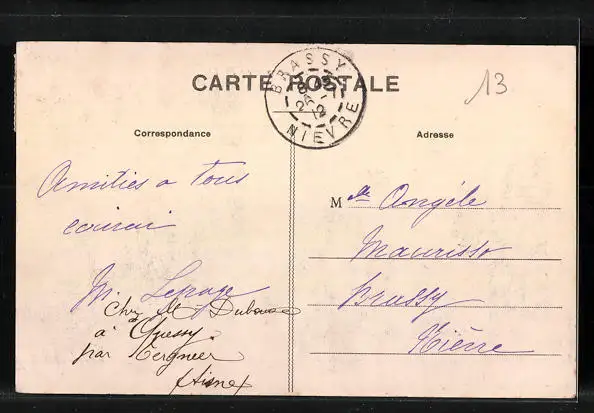 CARTE POSTALE
BRASSY
NIEVRE
13
Correspondance
Adresse
Amitiés a tous
M. Lepage
Chez Me Dubousse
à Quessy
par Tergnier
(Aisne)
Mlle Angéle
Maurisso
Brassy
Niévre